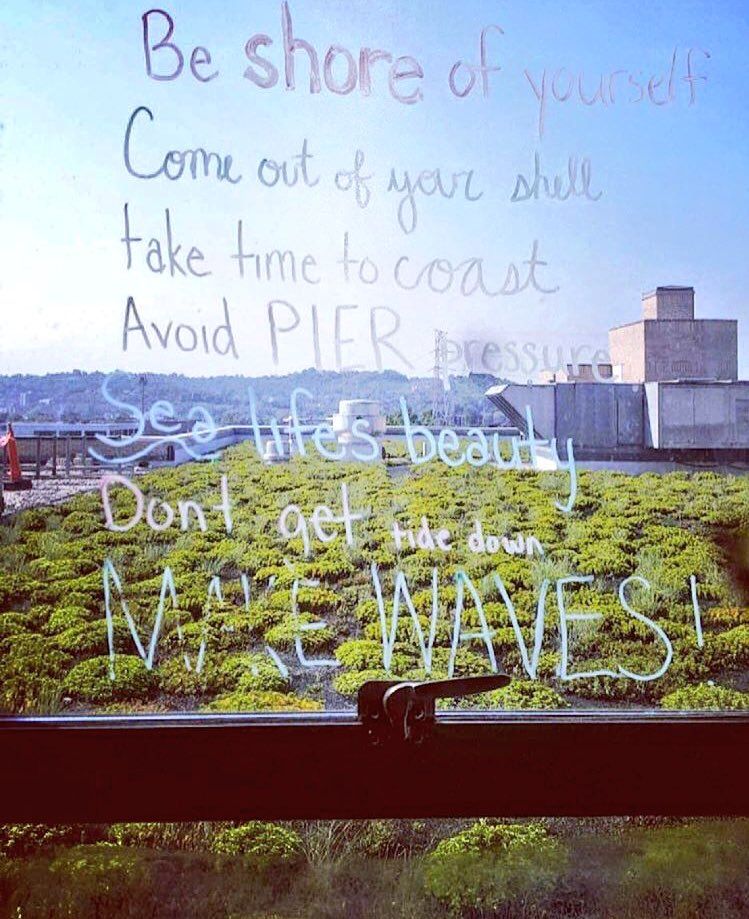 Be shore of yourself
Come out of your shell
take time to coast
Avoid PIER pressure
Sea life's beauty
Dont get tide down
MAKE WAVES!